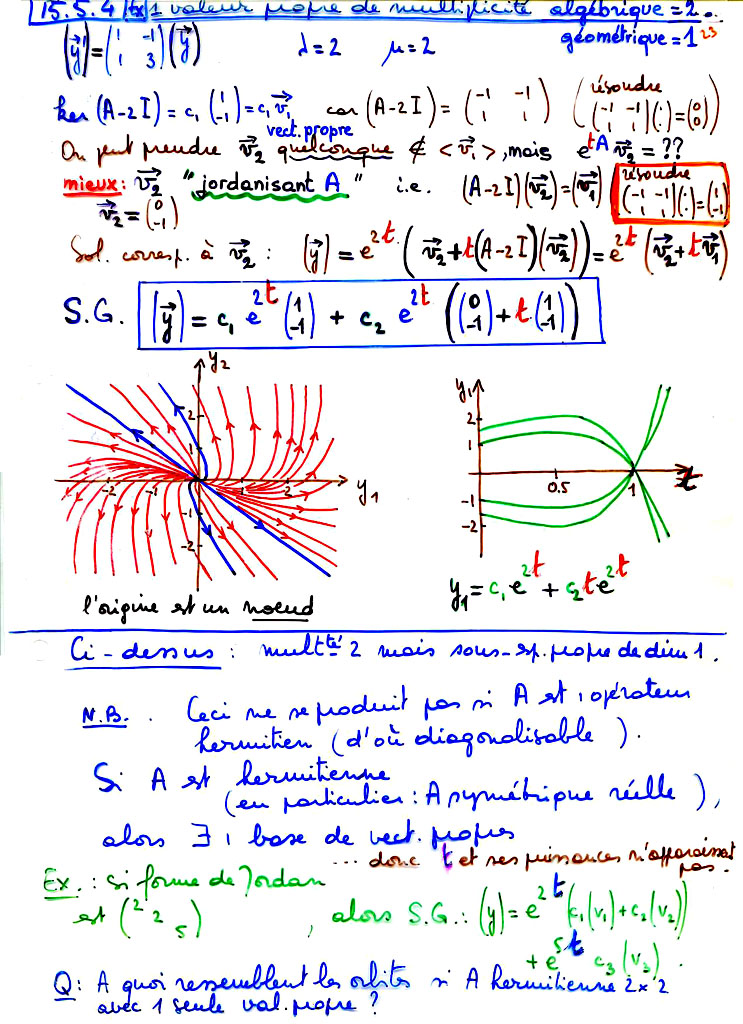 15.5.4 Ex 1 valeur propre de multiplicité algébrique = 2.
géométrique = 1 23
(y⃗') = (1 -1 / 1 3)(y⃗) λ = 2 μ = 2
ker (A-2I) = c₁ (1 / -1) = c₁ v⃗₁ car (A-2I) = (-1 -1 / 1 1) (résoudre (-1 -1 / 1 1)(· / ·) = (0 / 0))
vect. propre
On peut prendre v⃗₂ quelconque ∉ <v⃗₁>, mais e^{tA} v⃗₂ = ??
mieux: v⃗₂ "jordanisant A" i.e. (A-2I)(v⃗₂) = (v⃗₁) résoudre (-1 -1 / 1 1)(·) = (1 / -1)
v⃗₂ = (0 / -1)
Sol. corresp. à v⃗₂ : (y⃗) = e^{2t} · (v⃗₂ + t(A-2I)(v⃗₂)) = e^{2t} (v⃗₂ + t v⃗₁)
S.G. (y⃗) = c₁ e^{2t} (1 / -1) + c₂ e^{2t} ((0 / -1) + t · (1 / -1))
y₂
2
1
-2 -1 1 2 y₁
-1
-2
y₁
2
1
0.5 1 t
-1
-2
l'origine est un noeud
y₁ = c₁ e^{2t} + c₂ t e^{2t}
Ci-dessus : multᵗᵉ́ 2 mais sous-esp. propre de dim 1.
N.B. . Ceci ne se produit pas si A est 1 opérateur
hermitien (d'où diagonalisable).
Si A est hermitienne
(en particulier : A symétrique réelle),
alors ∃ 1 base de vect. propres
... donc t et ses puissances n'apparaissent
pas.
Ex. : si forme de Jordan
est (2 2 5) , alors S.G. : (y) = e^{2t} (c₁(v₁) + c₂(v₂))
+ e^{5t} c₃ (v₃) .
Q: A quoi ressemblent les orbites si A hermitienne 2x2
avec 1 seule val. propre ?